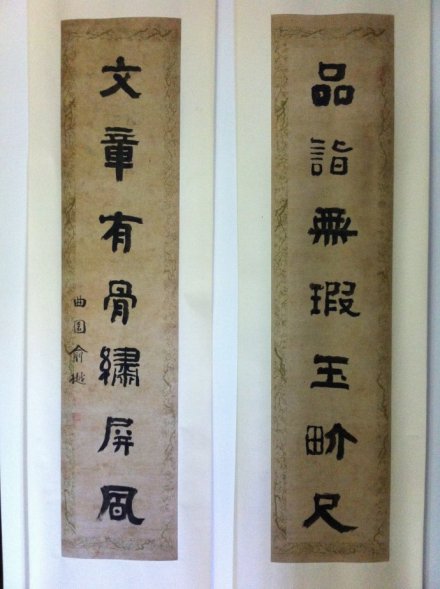 品詣無瑕玉畍尺
文章有骨繡屏風
曲園俞樾